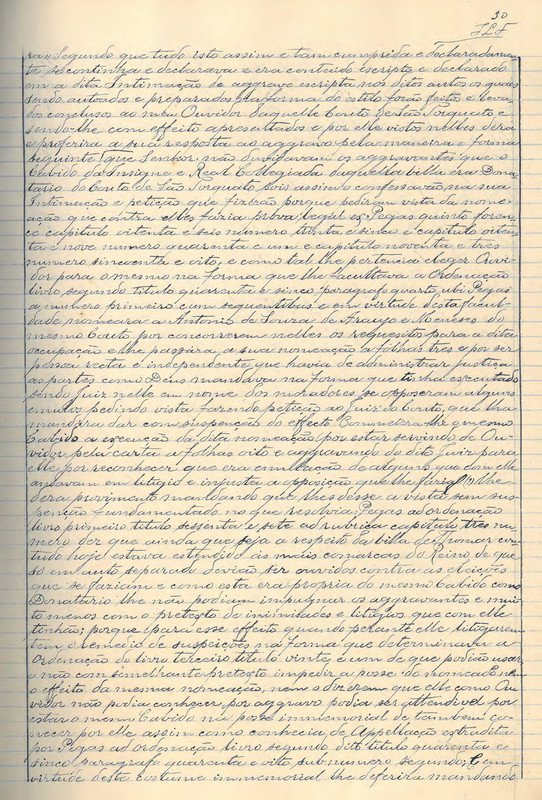 30
rao Segundo que tudo isto assim e tam cumprida e declaradamen
te se continha e declarava e era conteudo escripto e declarado
em a dita Intimação de aggravo escripta nos ditos autos os quaes
sendo autoados e preparados na forma do estilo forão feitos e leva
dos conclusos ao meu Ouvidor daquelle Couto de São Torquato e
sendo-lhe com effeito apresentados e por elle vistos nelles dera
e proferira a sua resposta ao aggravo pela maneira e forma
seguinte que Senhor: não duvidavam os aggravantes que o
Cabido da Insigne e Real Collegiada daquella villa era Dona
tario do Couto de São Torquato pois assim o confessavão na sua
Intimação e petição que fizerão porque pedirão vista da nome-
ação que contra elles fazia prova legal Pegas quinto foren
ce capitulo oitenta e seis numero trinta e sinco e capitulo oiten
ta e nove numero quarenta e um e capitulo noventa e tres
numero sincoenta e oito, e como tal lhe pertencia eleger Ouvi
dor para o mesmo na forma que lhe facultava a Ordenação
livro segundo titulo quarenta e sinco paragrafo quarto ubi Pegas
a numero primeiro cum sequentibus e em virtude desta facul-
dade nomeara a Antonio de Souza de Araujo e Meneses do
mesmo Couto por concorrerem nelles os requesitos para a dita
occupação e lhe passára a sua nomeação a folhas tres e por ser
pessoa recta e independente que havia de administrar justiça
as partes como Deus mandava na forma que tinha executado
sendo Juiz nelle em nome dos moradores se opposeram alguns
emulos pedindo vista fazendo petição ao Juiz do Couto, que lha
mandára dar com suspenção do effeito Comometera lhe o mesmo
Cabido a execução da dita nomeação por estar servindo de Ou-
vidor pela carta a folhas oito e aggravando do dito Juiz para
elle por reconhecer que era emulação de alguns que com elle
andavam em litigio e injusta a opposição que lhe fasião lhe
dera provimento mandando que lhes desse a vista sem sus-
penção fundamentado no que resolvia Pegas ad ordenação
livro primeiro titulo sessenta e sete ad rubrica capitulo tres nu
mero dez que ainda que seja a respeito da villa de Thomar con
tudo hoje estava estendido ás mais comarcas do Reino de que
só em auto separado devião ser ouvidos contra as eleições
que se faziam e como esta era propria do mesmo Cabido como
Donatario lhe não podiam impugnar os aggravantes e mui
to menos com o pretexto de inimisades e litigios que com elle
tinhão; porque para esse effeito quando perante elle litigarem
tem o remedio de suspeições na forma que determinava a
Ordenação do livro terceiro titulo vinte e um de que podião usar
e não com similhante pretexto impedir a posse do nomeado nem
o effeito da mesma nomeação, nem o dizerem que elle como Ou
vidor não podia conhecer por aggravo podia ser attendivel por
estar o mesmo Cabido na posse immemorial de tambem co-
necer por elle assim como conhecia de Appellação estradita
por Pegas ad ordenação livro segundo dito titulo quarenta e
sinco paragrafo quarenta e oito sub numero segundo; E em
virtude deste costume immemorial lhe deferira mandando